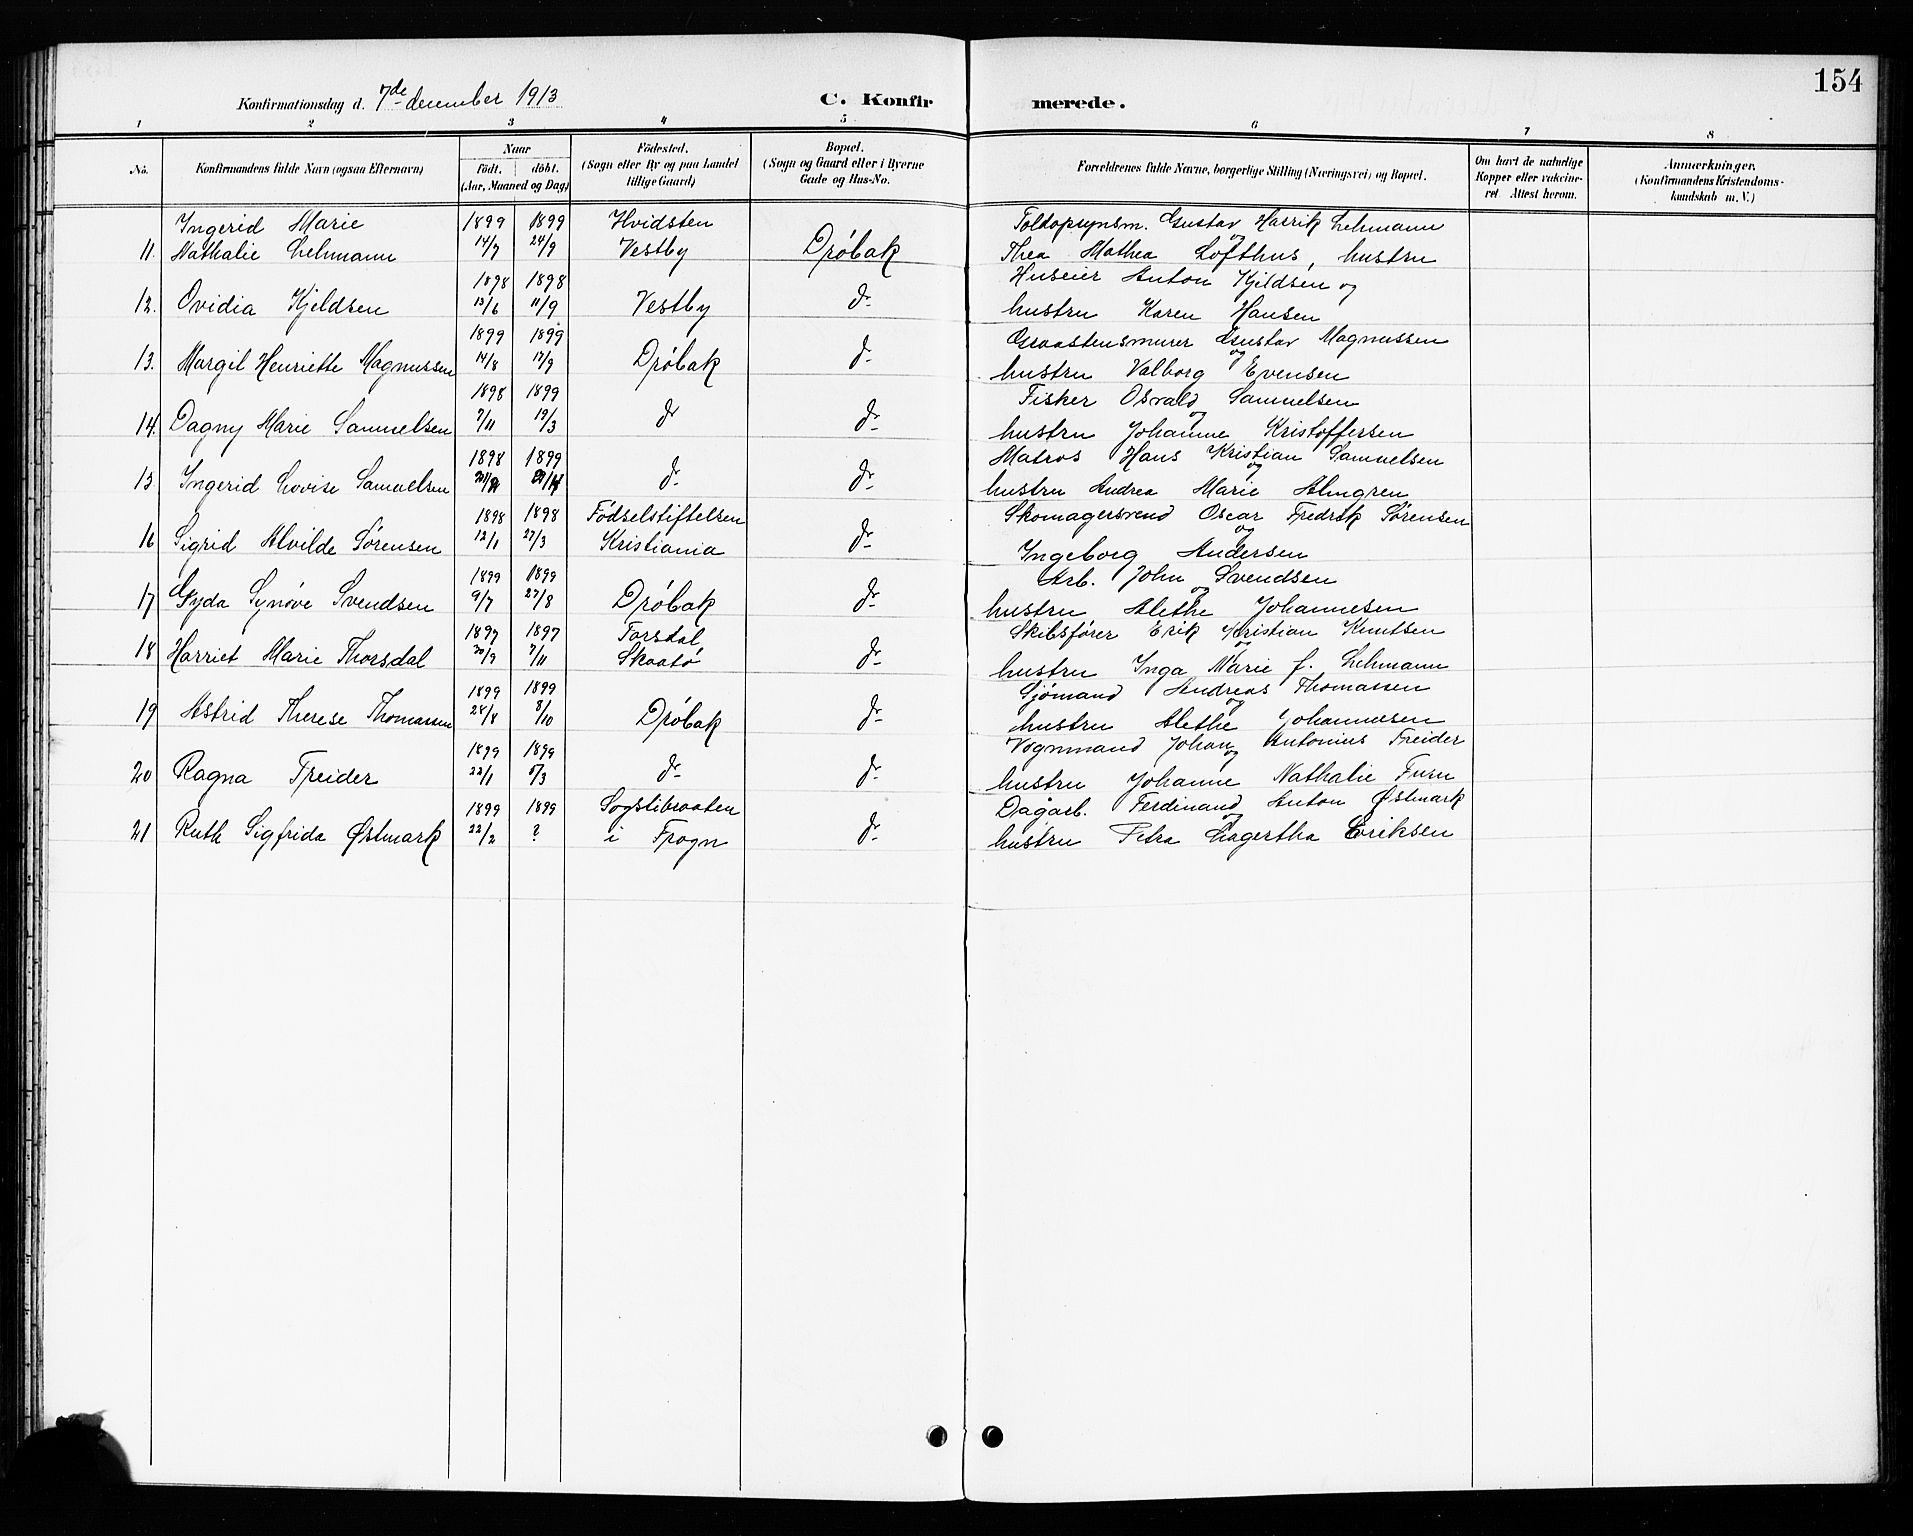 154
Konfirmationsdag d. 7de december 1913 C. Konfirmerede.
1 2 3 4 5 6 7 8
No. Konfirmandens fulde Navn (ogsaa Efternavn) Naar födt. döbt. (Aar, Maaned og Dag) Födested. (Sogn eller By og paa Landet tillige Gaard) Bopæl. (Sogn og Gaard eller i Byerne Gade og Hus-No. Forældrenes fulde Navne, borgerlige Stilling (Næringsvei) og Bopæl. Om havt de naturlige Kopper eller vakcineret Attest herom. Anmærkninger. (Konfirmandens Kristendomskundskab m. V.)
Ingerid Marie 1899 1899 Hvidsten Toldopsynsm. Gustav Henrik Lehmann og
11. Nathalie Lehmann 14/7 24/9 Vestby Drøbak Thea Mathea Lofthus, hustru
1898 1898 Huseier Anton Kjeldsen og
12. Ovidia Kjeldsen 13/6 11/9 Vestby do hustru Karen Hansen
1899 1899 Graastensmurer Gustav Magnussen og
13. Margit Henriette Magnussen 14/8 17/9 Drøbak do hustru Valborg Evensen
1898 1899 Fisker Osvald Samuelsen og
14. Dagny Marie Samuelsen 7/11 19/3 do do hustru Johanne Kristoffersen
1898 1899 Matros Hans Kristian Samuelsen og
15 Ingerid Lovise Samuelsen do do hustru Andrea Marie Almgren
1898 1898 Fødselstiftelsen Skomagersvend Oscar Fredrik Sørensen og
16 Sigrid Alvilde Sørensen 12/1 27/3 Kristiania do Ingeborg Andersen
1899 1899 Arb. John Svendsen og
17 Gyda Synøve Svendsen 9/7 27/8 Drøbak do hustru Alethe Johannesen
1897 1897 Torsdal Skibsfører Erik Kristian Knutsen og
18 Harriet Marie Thorsdal 20/9 7/11 Skaatø do hustru Inga Marie f. Lehmann
1899 1899 Sjømand Andreas Thomassen og
19 Astrid Therese Thomassen 24/8 8/10 Drøbak do hustru Alethe Johannesen
1899 1899 Vognmand Johan Antonius Treider og
20 Ragna Treider 22/1 5/3 do do hustru Johanne Nathalie Furu
1899 1899 Sogstibraaten Dagarb. Ferdinand Anton Østmark og
21 Ruth Sigfrida Østmark 22/2 ? i Frogn do hustru Petra Lagertha Eriksen